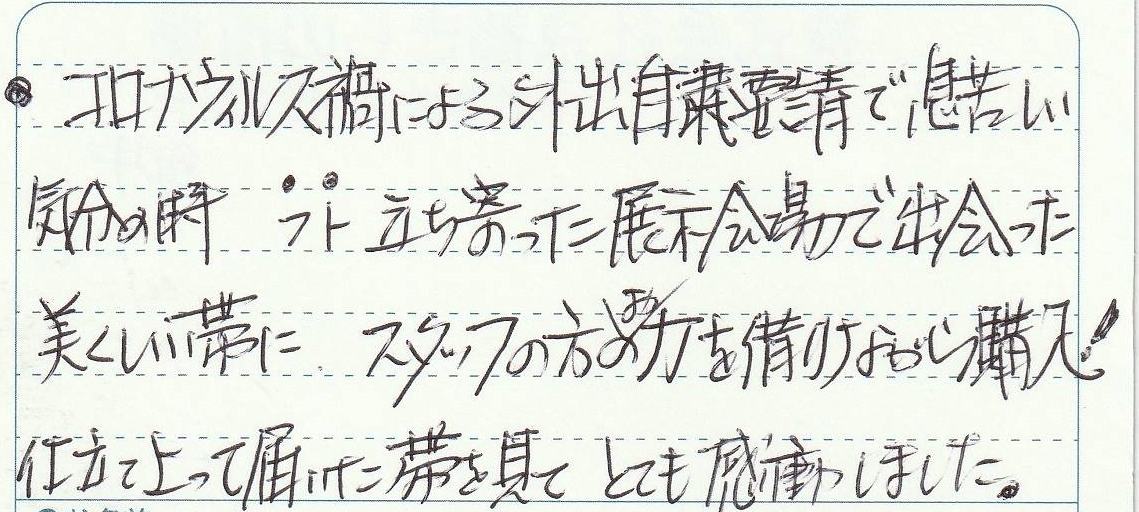 ● コロナウィルス禍による外出自粛要請で息苦しい
気分の時 フト 立ち寄った展示会場で出会った
美しい帯に スタッフの方のお力を借りながら購入!
仕立て上って届いた帯を見て とても感動しました。